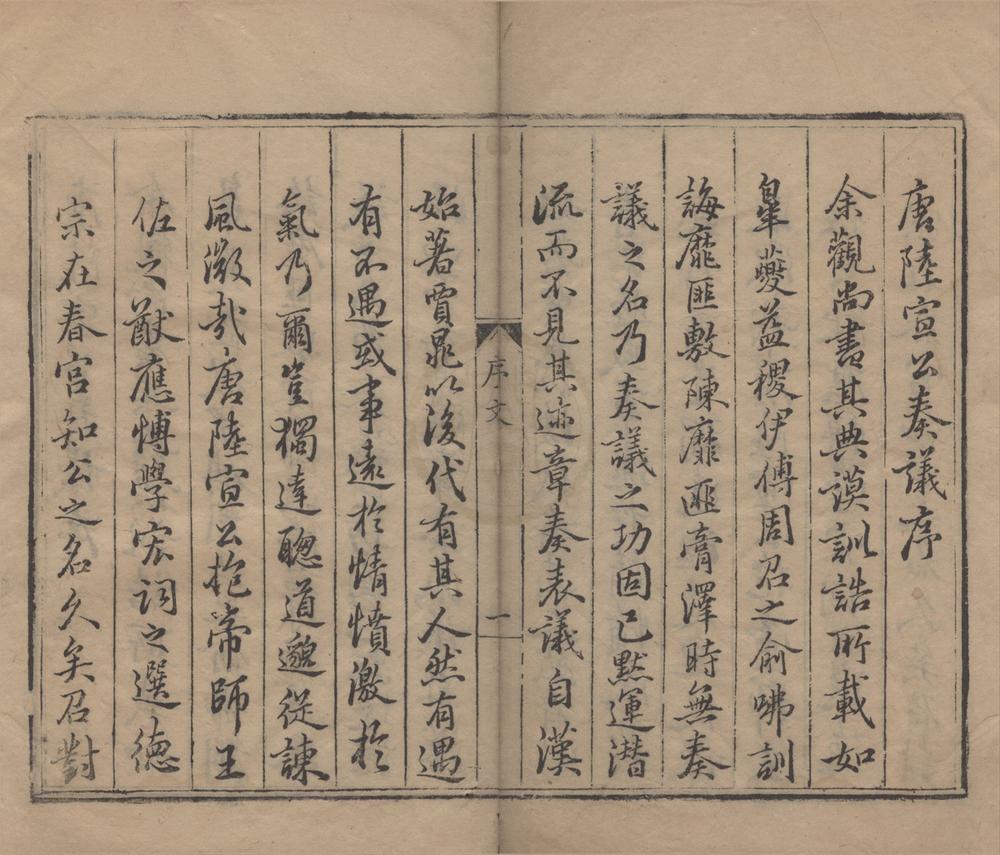 唐陸宣公奏議序
余觀尚書其典謨訓誥所載如
皐夔益稷伊傅周召之俞咈訓
誨靡匪敷陳靡匪膏澤時無奏
議之名乃奏議之功固已默運潛
流而不見其迹章奏表議自漢
序文
一
始著賈晁以後代有其人然有遇
有不遇或事遠於情憤激於
氣乃爾豈獨達聰道邈從諫
風微哉唐陸宣公抱帝師王
佐之猷應博學宏詞之選德
宗在春宮知公之名久矣召對